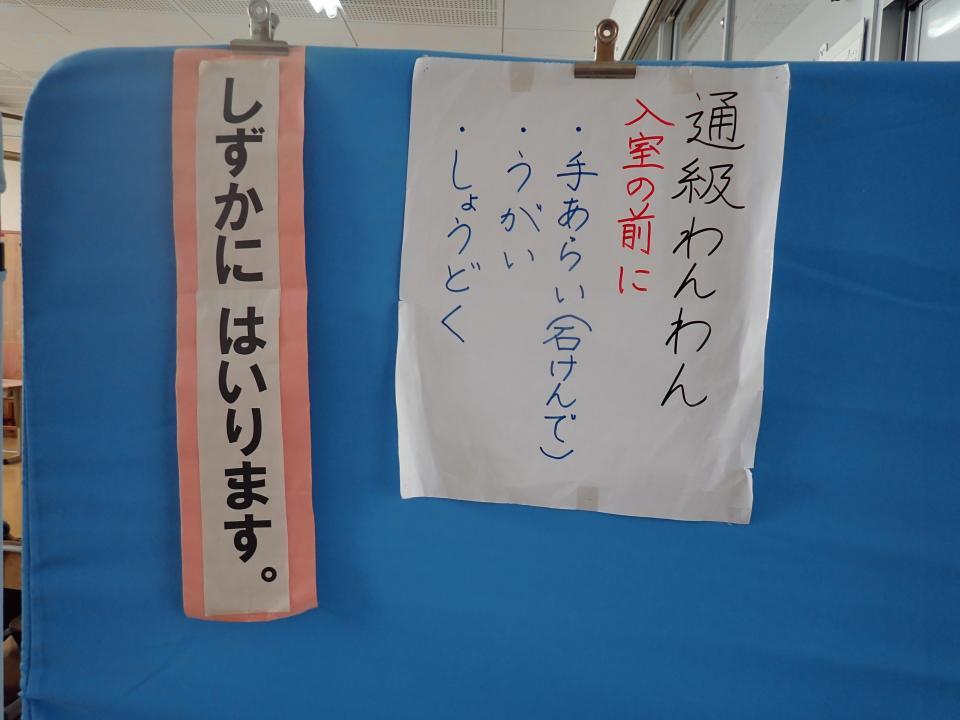 通級わんわん
入室の前に
・手あらい(石けんで)
・うがい
・しょうどく
しずかに はいります。